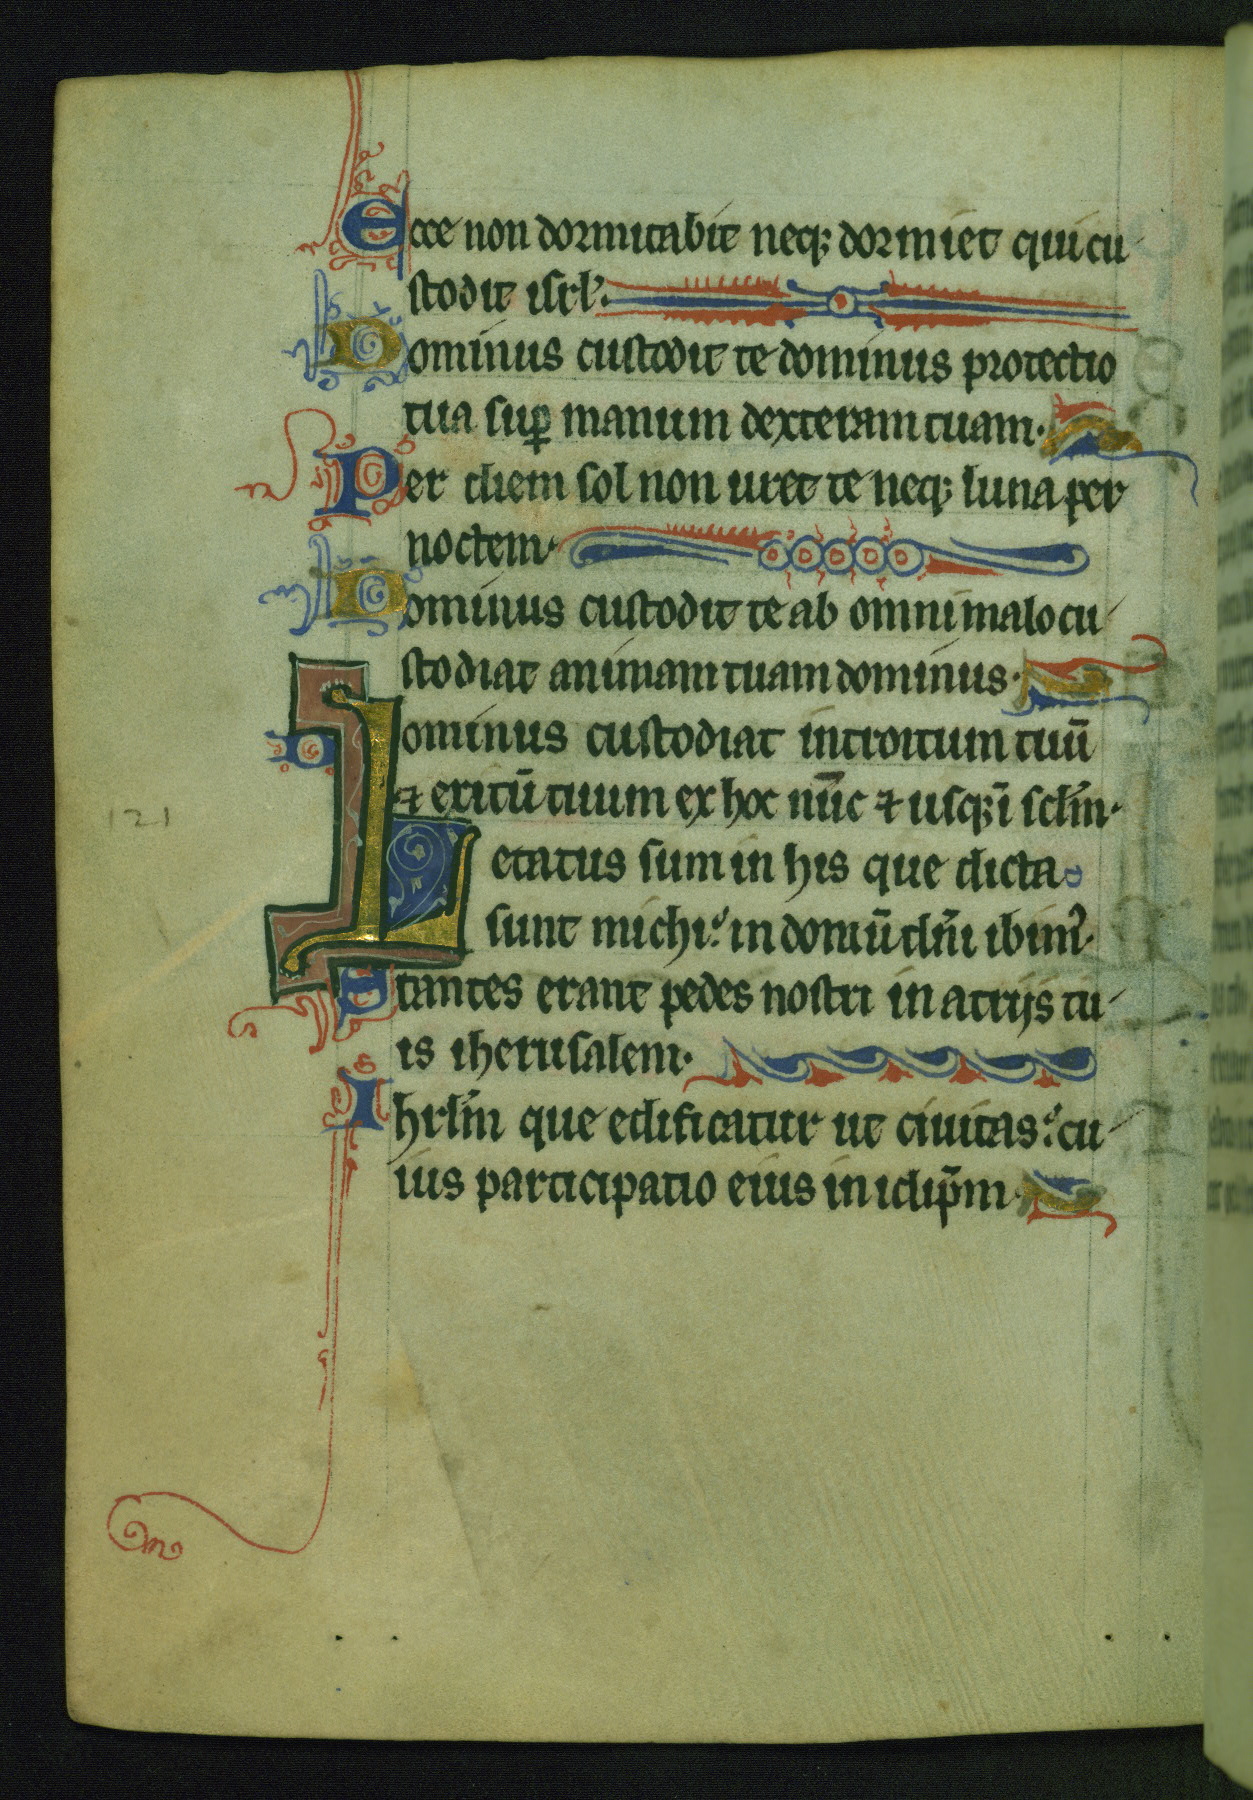 Ecce non dormitabit neq; dormiet qui cu
stodit isrl'.
Dominus custodit te dominus protectio
tua sup̱ manum dexteram tuam.
Per diem sol non uret te neq; luna per
noctem.
Dominus custodit te ab omni malo cu
stodiat animam tuam dominus.
Dominus custodiat introitum tuū
⁊ exitū tuum ex hoc nūc ⁊ usq; ī sclm̄.
121
Letatus sum in his que dicta
sunt michi: in domū dn̄i ibim᷒.
Stantes erant pedes nostri in atrijs tu
is iherusalem.
Ihrlm̄ que edificatur ut ciuitas: cu
ius participatio eius in idip̄m.